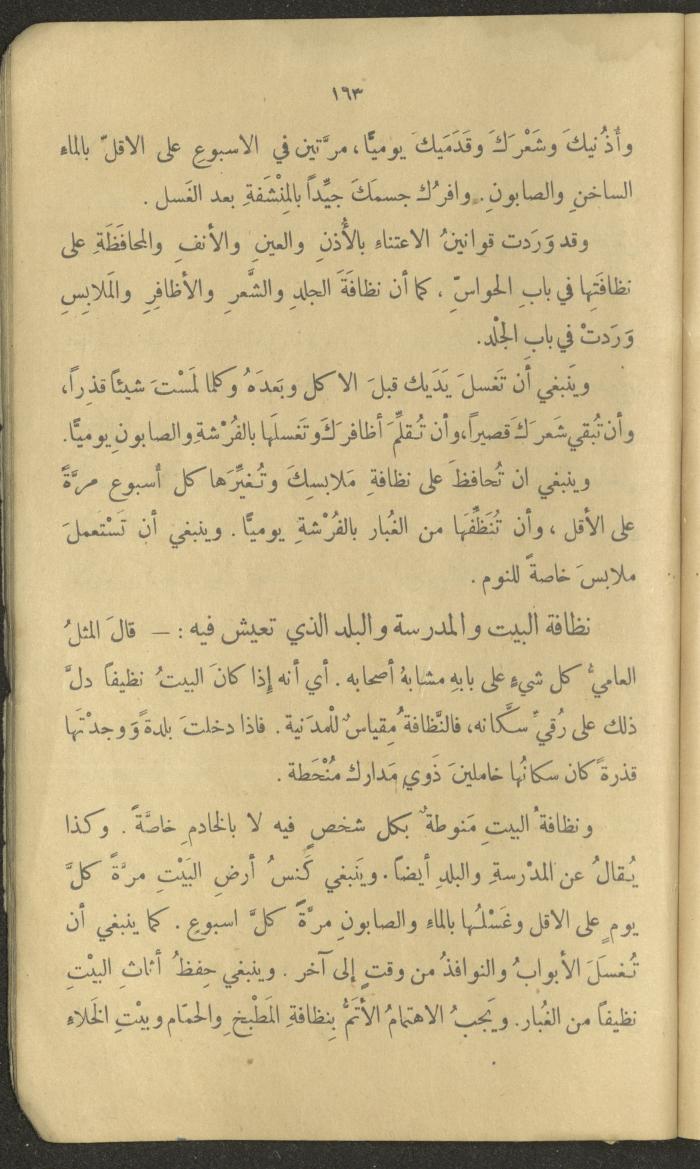 ١٦٣
وأُذُنيكَ وشَعْرَكَ وقَدَمَيكَ يوميًّا، مرَّتين في الاسبوعِ على الاقلّ بالماء
الساخنِ والصابونِ. وافرُك جسمَكَ جيِّداً بالمِنْشَفةِ بعد الغَسل .
وقد وَرَدت قوانينُ الاعتناءِ بالأُذنِ والعينِ والأنفِ والمحافَظَةِ على
نظافَتِها في بابِ الحواسِّ ، كما أن نظافَةَ الجلدِ والشَّعرِ والأظافِرِ والمَلابِسِ
وَرَدتْ في بابِ الجْلد.
ويَنبغي أَن تَغسلَ يَدَيك قبلَ الاكل وبَعدَهُ وكلما لَمَسْتَ شيئاً قذِراً،
وأن تُبقي شَعرَكَ قصيراً، وأن تُقلِّمَ أظافرَكَ وتَغسلَها بالفُرْشةِ والصابونِ يوميًّا.
وينبغي ان تُحافظَ على نظافةِ مَلابسِكَ وتُغيِّرَها كل أسبوع مرَّةً
على الأقل ، وأن تُنَظِّفَها من الغُبار بالفُرْشةِ يوميًّا . وينبغي أن تَسْتعملَ
ملابسَ خاصةً للنوم .
نظافة البيت والمدرسة والبلد الذي تعيش فيه : — قالَ المثلُ
العاميُّ كل شيءٍ على بابِهِ مشابهُ أصحابه . أي أنه إِذا كانَ البيتُ نظيفاً دلَّ
ذلك على رُقيِّ سكَّانه، فالنَّظافةُ مِقياسٌ للْمدَنية . فاذا دخلتَ بلدةً وَوجدْتَها
قذرةً كان سكانُها خاملينَ ذَوي مَدارك مُنْحَطة .
ونظافةُ البيتِ مَنوطةٌ بكل شخصٍ فيه لا بالخادمِ خاصَّةً . وكذا
يُقالُ عن المدْرسةِ والبلدِ أيضاً . ويَنبغي كَنسُ أرضِ البَيْتِ مرَّةً كلَّ
يومٍ على الاقل وغَسْلُها بالماءِ والصابونِ مرَّةً كلَّ اسبوعٍ . كما ينبغي أن
تُغسَلَ الأبوابُ والنوافذُ من وقتٍ إلى آخر . وينبغي حِفظُ أثاثِ البيْتِ
نظيفاً من الغُبار. ويَجبُ الاهتمامُ الأَتَمُّ بِنظافةِ المَطْبخِ والحمّام وبيْتِ الخَلاء